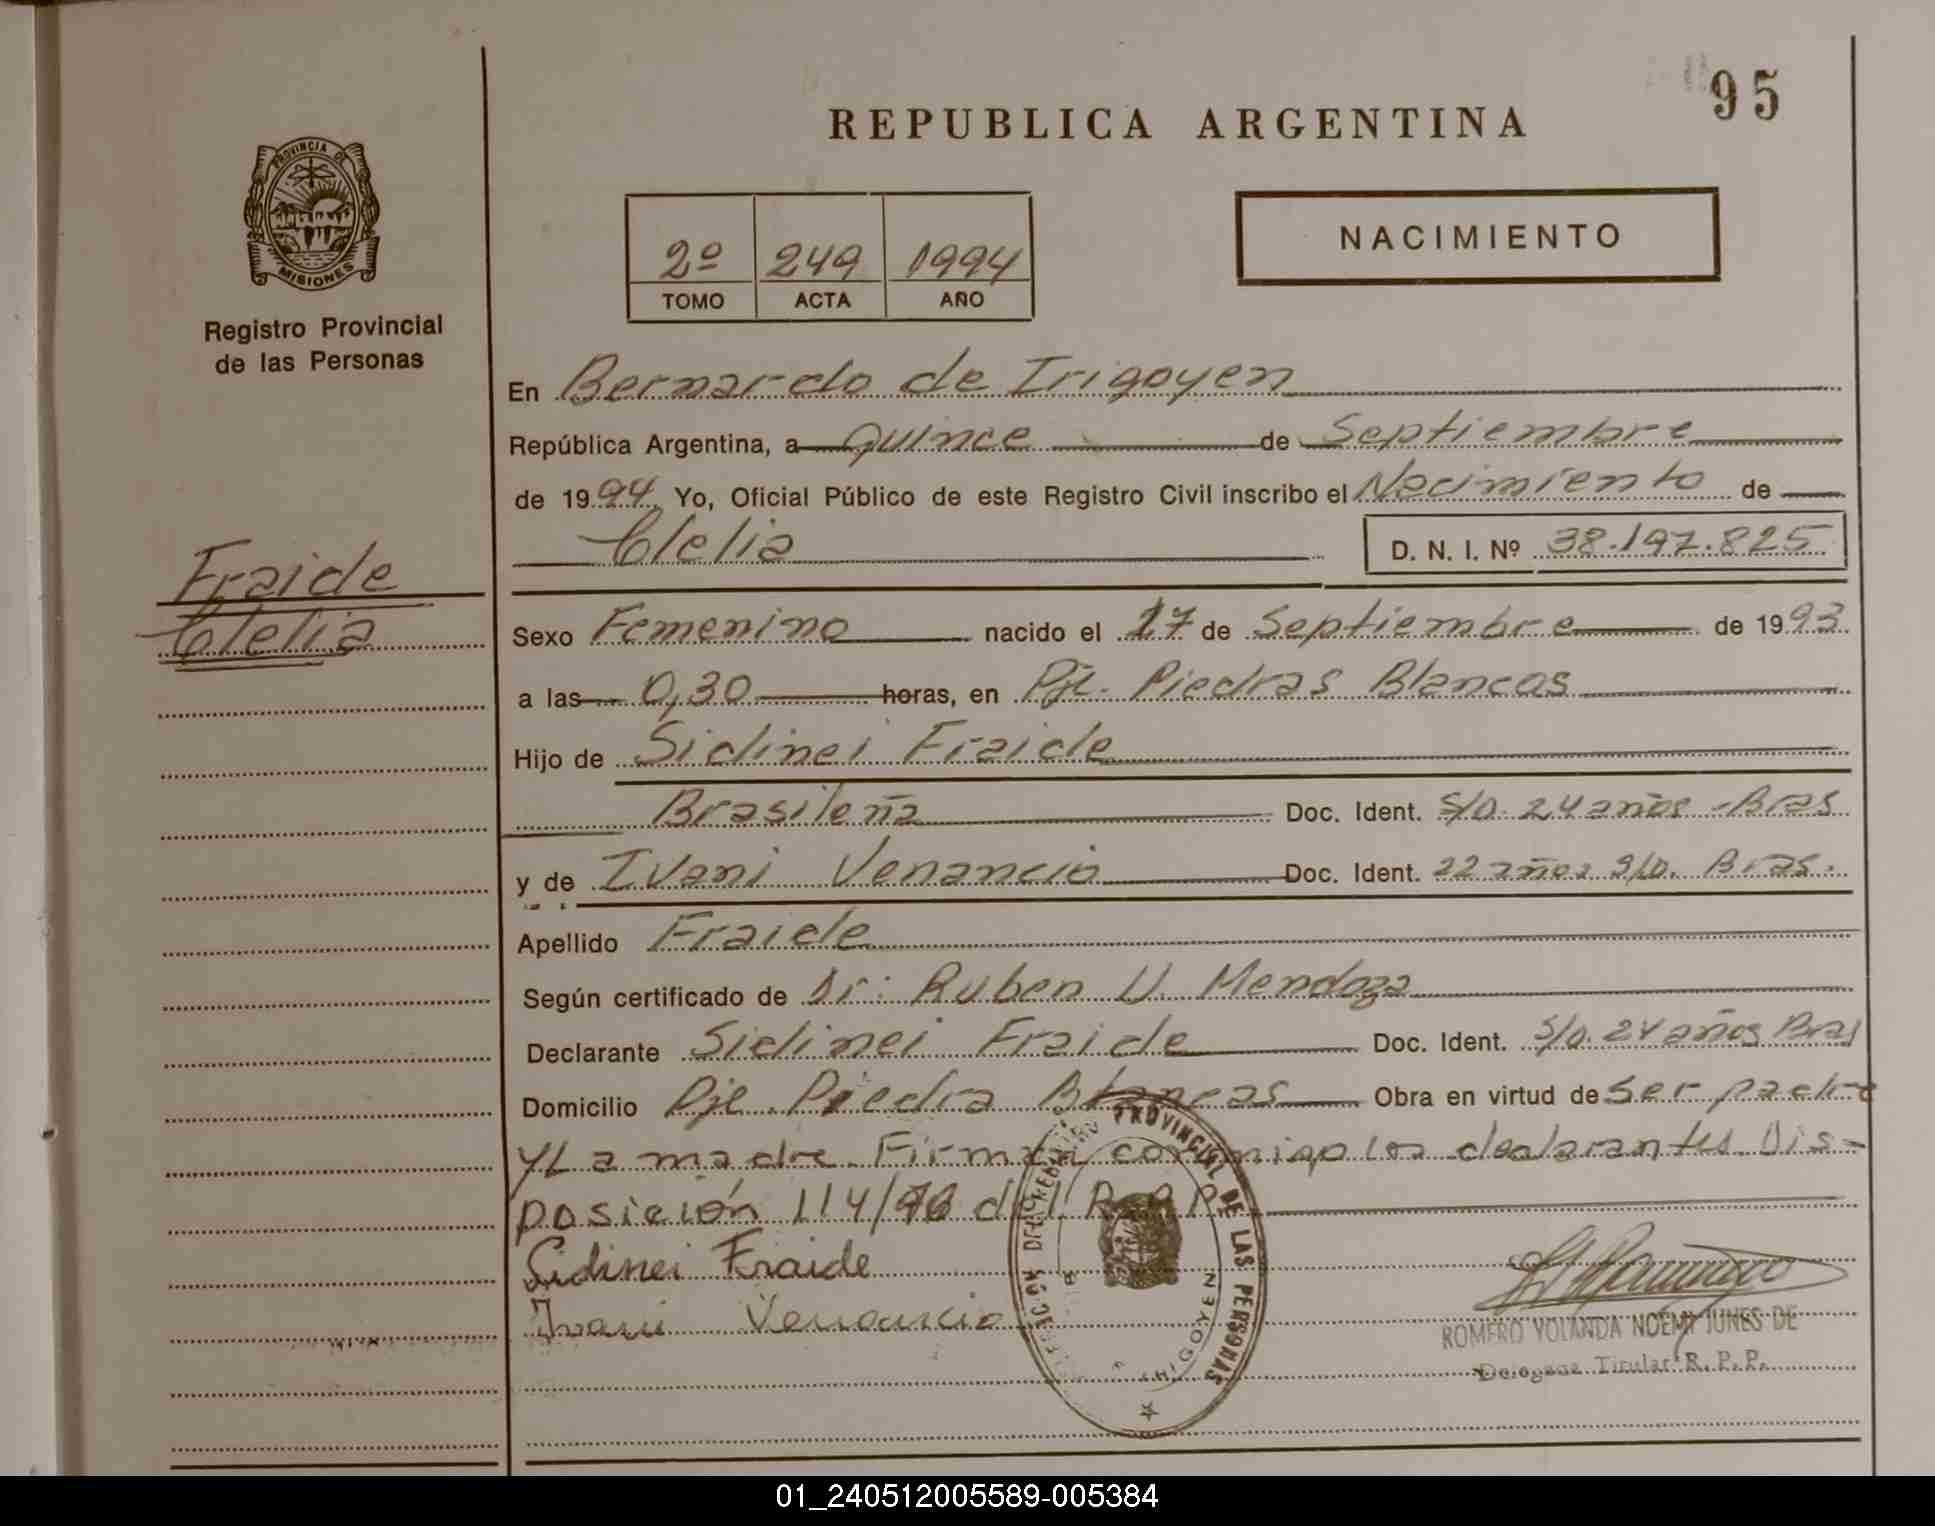 95
REPUBLICA ARGENTINA
PROVINCIA DE
MISIONES
Registro Provincial
de las Personas
2º 249 1994
TOMO ACTA AÑO
NACIMIENTO
En Bernardo de Irigoyen
República Argentina, a Quince de Septiembre
de 1994. Yo, Oficial Público de este Registro Civil inscribo el Nacimiento de
Clelia D. N. I. Nº 38.197.825
Fraide
Clelia
Sexo Femenino nacido el 27 de Septiembre de 1993
a las 0,30 horas, en Pje. Piedras Blancas
Hijo de Sidinei Fraide
Brasileña Doc. Ident. S/D. 24 años - Bras
y de Ivani Venancio Doc. Ident. 22 años S/D. Bras.
Apellido Fraide
Según certificado de Dr: Ruben U. Mendoza
Declarante Sidinei Fraide Doc. Ident. S/D. 24 años Bras
Domicilio Pje Piedra Blancas Obra en virtud de Ser padre
y La madre. Firman conmigo los declarantes Dis-
posición 114/ del R.P.P.
Sidinei Fraide
Ivani Venancio
PROVINCIAL DE LAS PERSONAS
ROMERO YOLANDA NOEMY JUNES DE
Delegada Titular R. P. P.
01_240512005589-005384